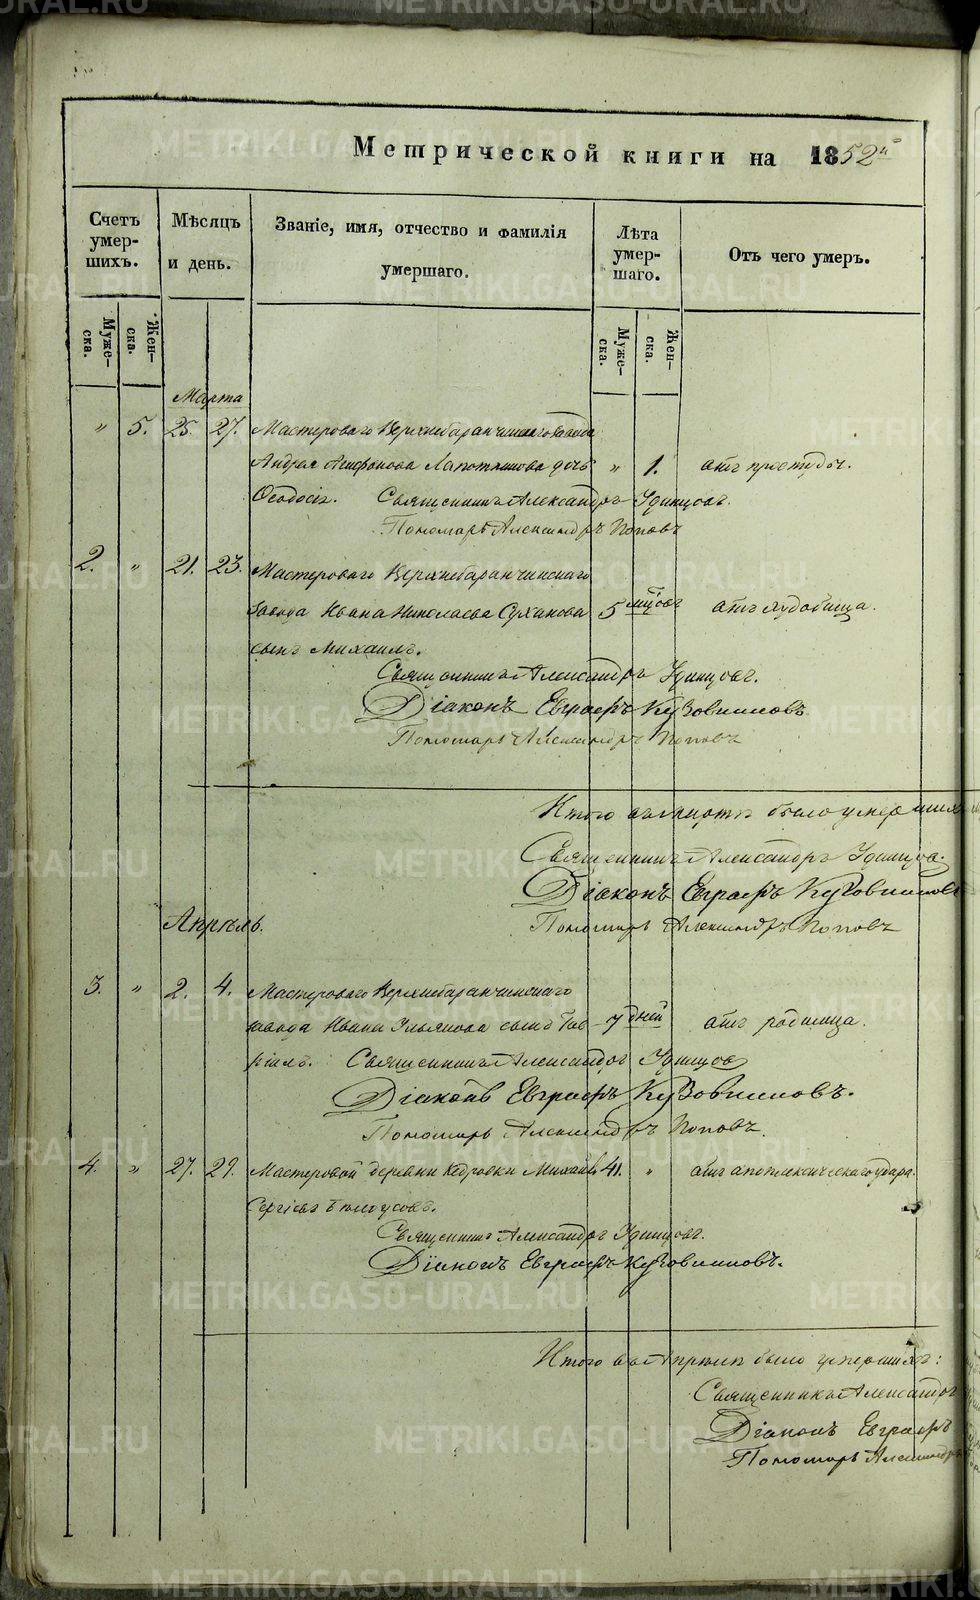 METRIKI.GASO-URAL.RU
Метрической книги на 1852й
Счетъ умер- шихъ.
Мѣсяцъ и день.
Званіе, имя, отчество и фамилія умершаго.
Лѣта умер- шаго.
Отъ чего умеръ.
Муже- ска.
Жен- ска.
Муже- ска.
Жен- ска.
Марта
" 5. 25. 27. Мастероваго Верхнебаранчинскаго завода
Андрея дочь " 1. отъ простуды.
Ѳеодосія. Священникъ Александръ Удинцовъ.
Пономарь Александръ Поповъ
2. " 21. 23. Мастероваго Верхнебаранчинскаго
завода Ивана Николаева Суханова 5 мѣсяц. отъ худобища.
сынъ Михаилъ.
Священникъ Александръ Удинцовъ.
Діаконъ Евграфъ Кузовниковъ
Пономарь Александръ Поповъ
Итого въ мартѣ было умерших
Священникъ Александръ Удинцов.
Діаконъ Евграфъ Кузовников
Пономарь Александръ Поповъ
Апрѣль.
3. " 2. 4. Мастероваго Верхнебаранчинскаго
завода Ивана Ульянова сынъ Гав 7 дней отъ родимца.
ріилъ. Священникъ Александръ Удинцов
Діаконъ Евграфъ Кузовниковъ.
Пономарь Александръ Поповъ
4. " 27. 29. Мастеровой деревни Кедровки Михаилъ 41. " отъ апоплексическаго удара.
Сергіевъ Бѣлоусовъ.
Священникъ Александръ Удинцовъ.
Діаконъ Евграфъ Кузовниковъ.
Итого въ Апрѣлѣ было умершихъ:
Священникъ Александръ
Діаконъ Евграфъ
Пономарь Александръ